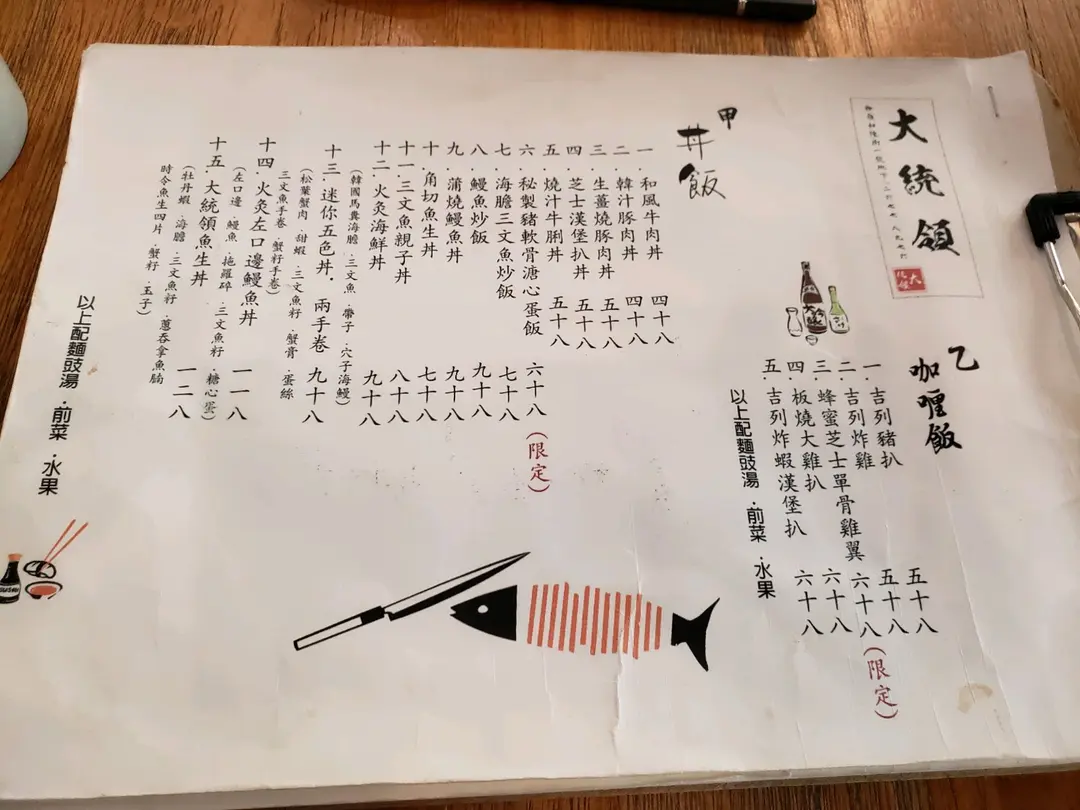 大統領
乙
咖喱飯
一．吉列豬扒 五十八
二．吉列炸雞 五十八
三．蜂蜜芝士單骨雞翼 六十八（限定）
四．板燒大雞扒 六十八
五．吉列炸蝦漢堡扒 六十八
以上配麵豉湯．前菜．水果
甲
丼飯
一．和風牛肉丼 四十八
二．韓汁豚肉丼 四十八
三．生薑燒豚肉丼 五十八
四．芝士漢堡扒丼 五十八
五．燒汁牛脷丼 五十八
六．秘製豬軟骨溏心蛋飯 六十八（限定）
七．海膽三文魚炒飯 七十八
八．鰻魚炒飯 九十八
九．蒲燒鰻魚丼 九十八
十．角切魚生丼 七十八
十一．三文魚親子丼 八十八
十二．火灸海鮮丼 九十八
（韓國馬糞海膽．三文魚．帶子．穴子海鰻）
十三．迷你五色丼．兩手卷 九十八
（松葉蟹肉．甜蝦．三文魚籽．蟹膏．蛋絲
三文魚手卷．蟹籽手卷）
十四．火灸左口邊鰻魚丼 一一八
（左口邊．鰻魚．拖羅碎．三文魚籽．糖心蛋）
十五．大統領魚生丼 一二八
（牡丹蝦．海膽．三文魚籽．蔥吞拿魚腩
時令魚生四片．蟹籽．玉子）
以上配麵豉湯．前菜．水果